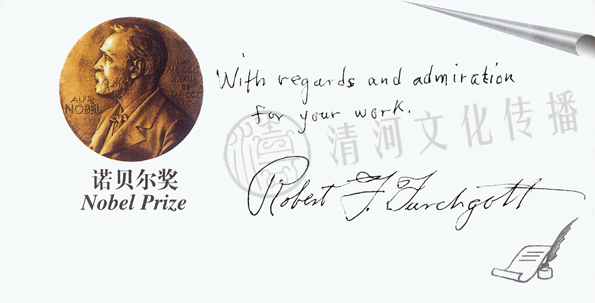 With regards and admiration
for your work.
Robert F. Furchgott
ALFR
NOBEL
诺贝尔奖
Nobel Prize
清河文化传播